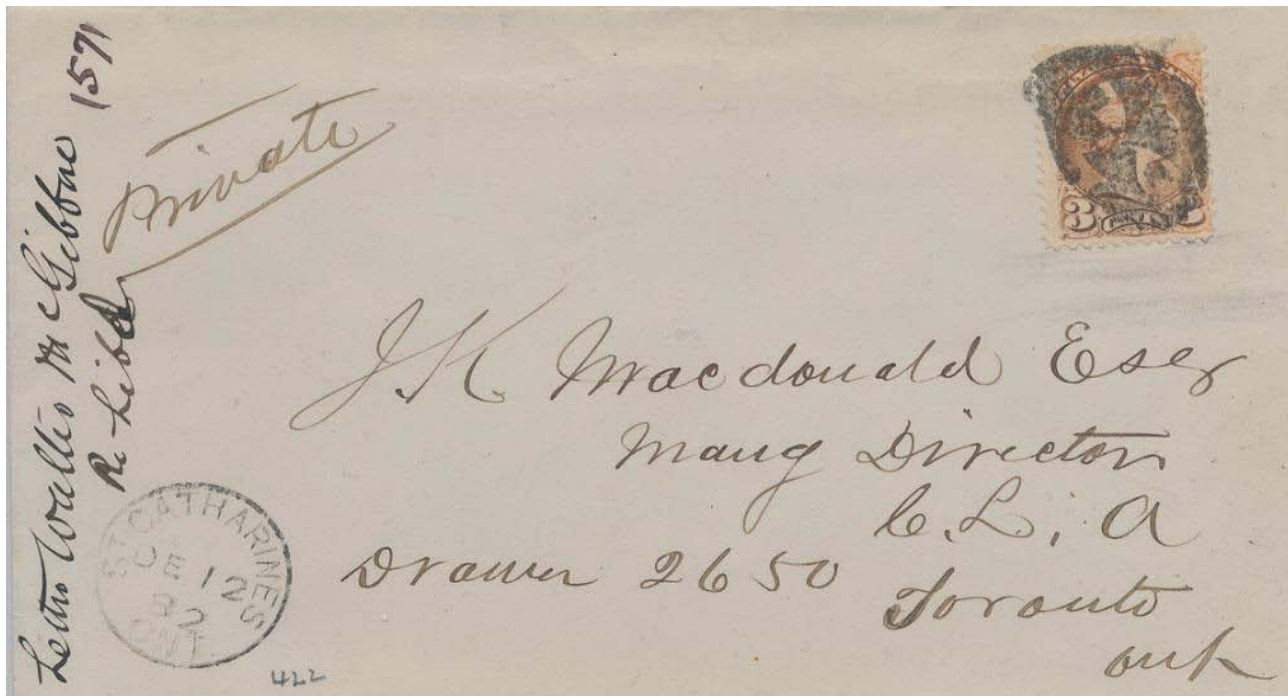 Lettr Wallis McGibbne 1571
Re Libel
Private
3 CENTS
J. K Macdonald Esqr
Mang Director
C. L. A
Drawer 2650
Toronto
Ont
ST. CATHARINES
DE 12
82
ONT.
422